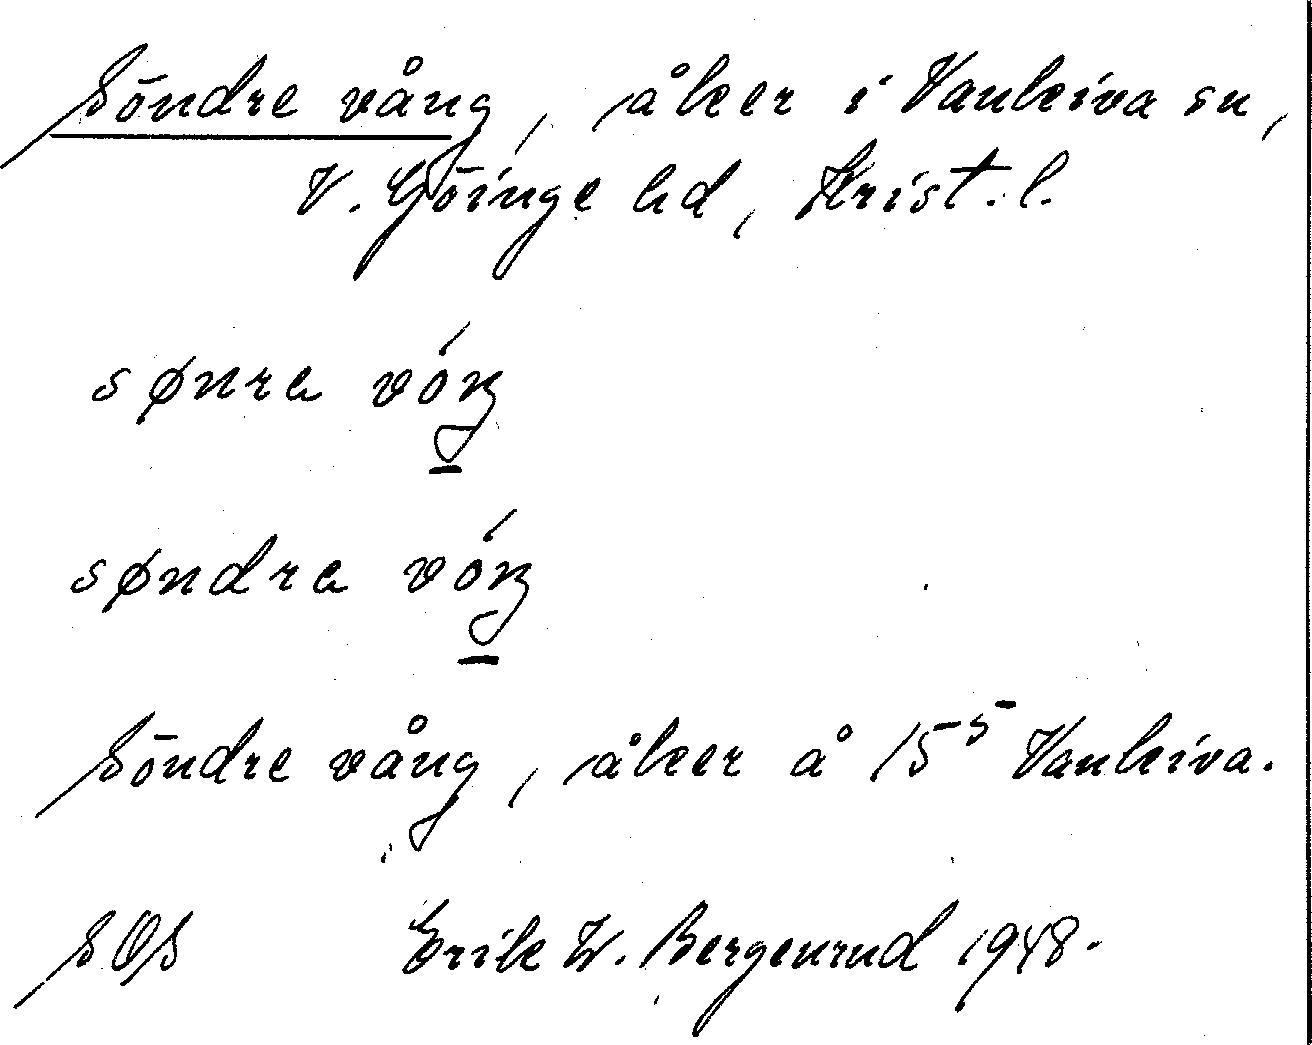 Söndre vång, åker i Vankiva sn,
V. Göinge hd, Krist. l.
sønra vóŋ
søndra vóŋ
Söndre vång, åker å 15⁵ Vankiva.
SOS Erik W. Bergenrud 1948.